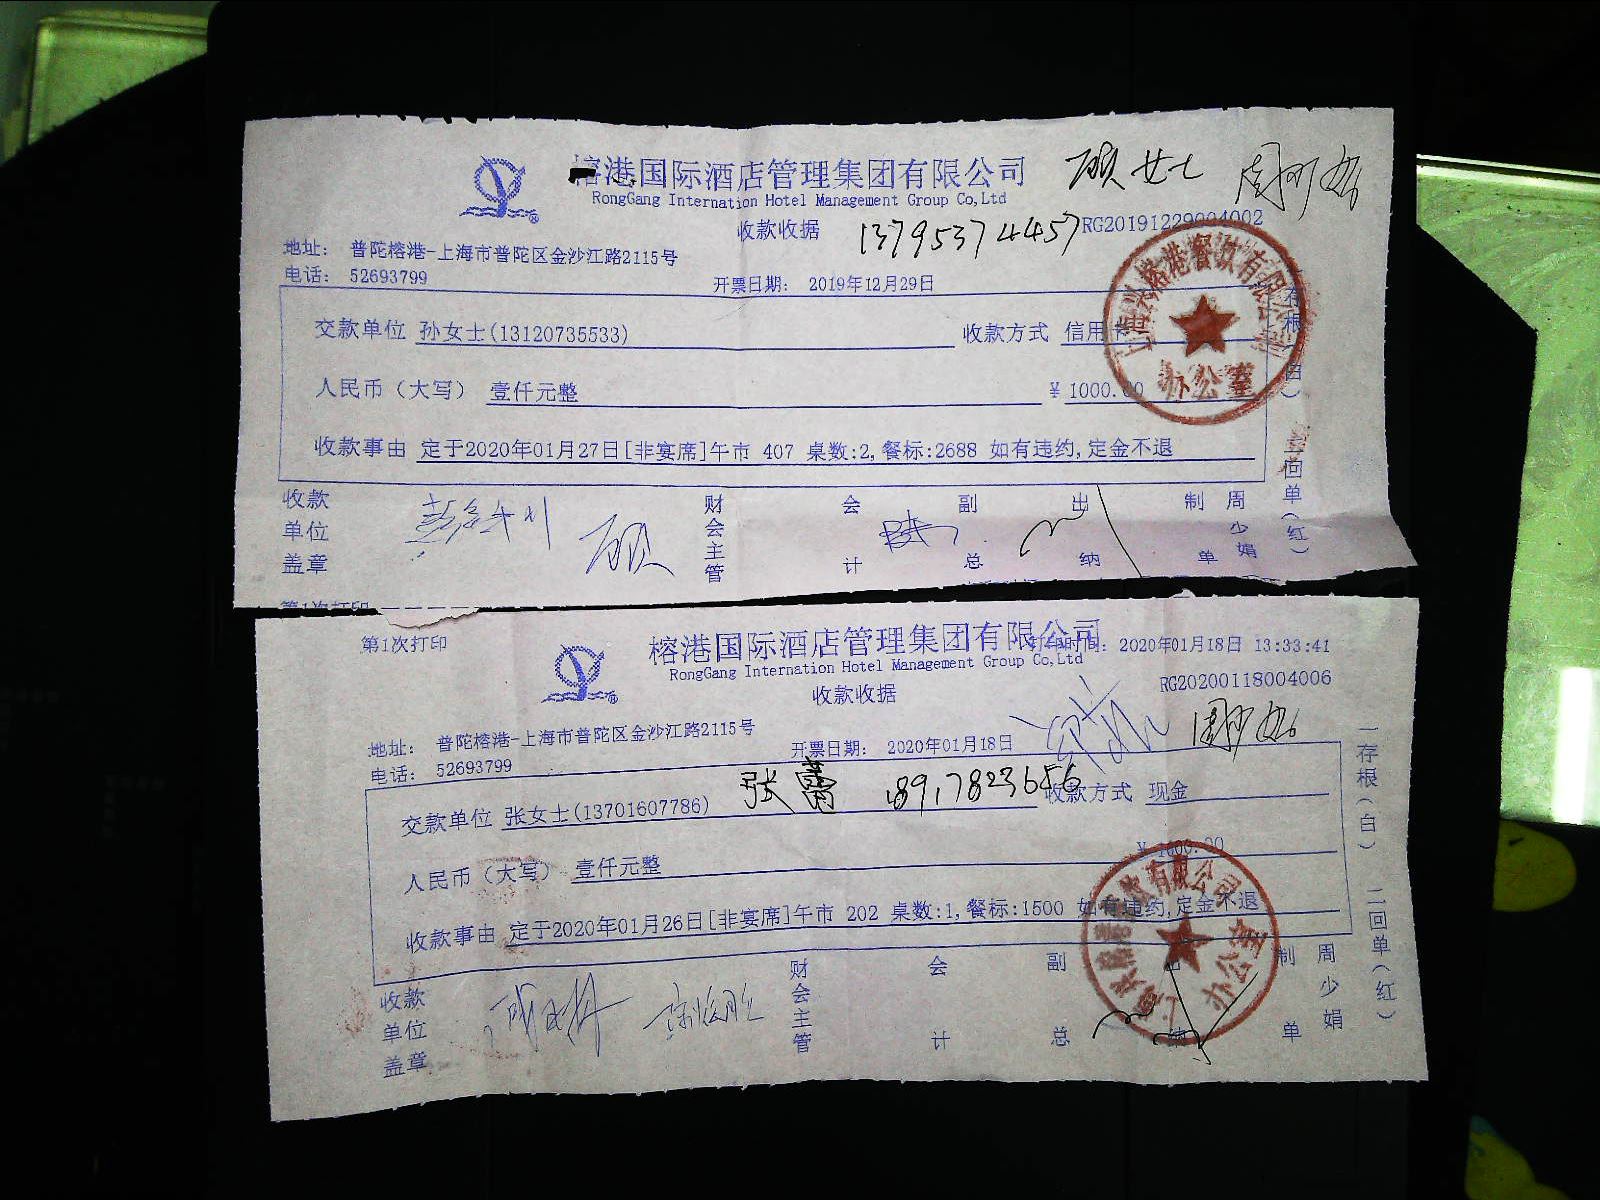 榕港国际酒店管理集团有限公司 顾女士
RongGang Internation Hotel Management Group Co,Ltd
收款收据 13795374457 RG20191229004002
地址： 普陀榕港-上海市普陀区金沙江路2115号
电话： 52693799 开票日期： 2019年12月29日
交款单位 孙女士(13120735533) 收款方式 信用卡
人民币（大写） 壹仟元整 ￥1000.00
收款事由 定于2020年01月27日[非宴席]午市 407 桌数:2,餐标:2688 如有违约,定金不退
收款单位盖章 顾 财会主管 会计 副总 出纳 制单 周少娟
二回单（红）
办公室
第1次打印
第1次打印 榕港国际酒店管理集团有限公司 打印时间： 2020年01月18日 13:33:41
RongGang Internation Hotel Management Group Co,Ltd
收款收据 RG20200118004006
地址： 普陀榕港-上海市普陀区金沙江路2115号
电话： 52693799 开票日期： 2020年01月18日
交款单位 张女士(13701607786) 张 收款方式 现金
人民币（大写） 壹仟元整 ￥1000.00
收款事由 定于2020年01月26日[非宴席]午市 202 桌数:1,餐标:1500 如有违约,定金不退
收款单位盖章 财会主管 会计 副总 出纳 制单 周少娟
一存根（白） 二回单（红）
办公室